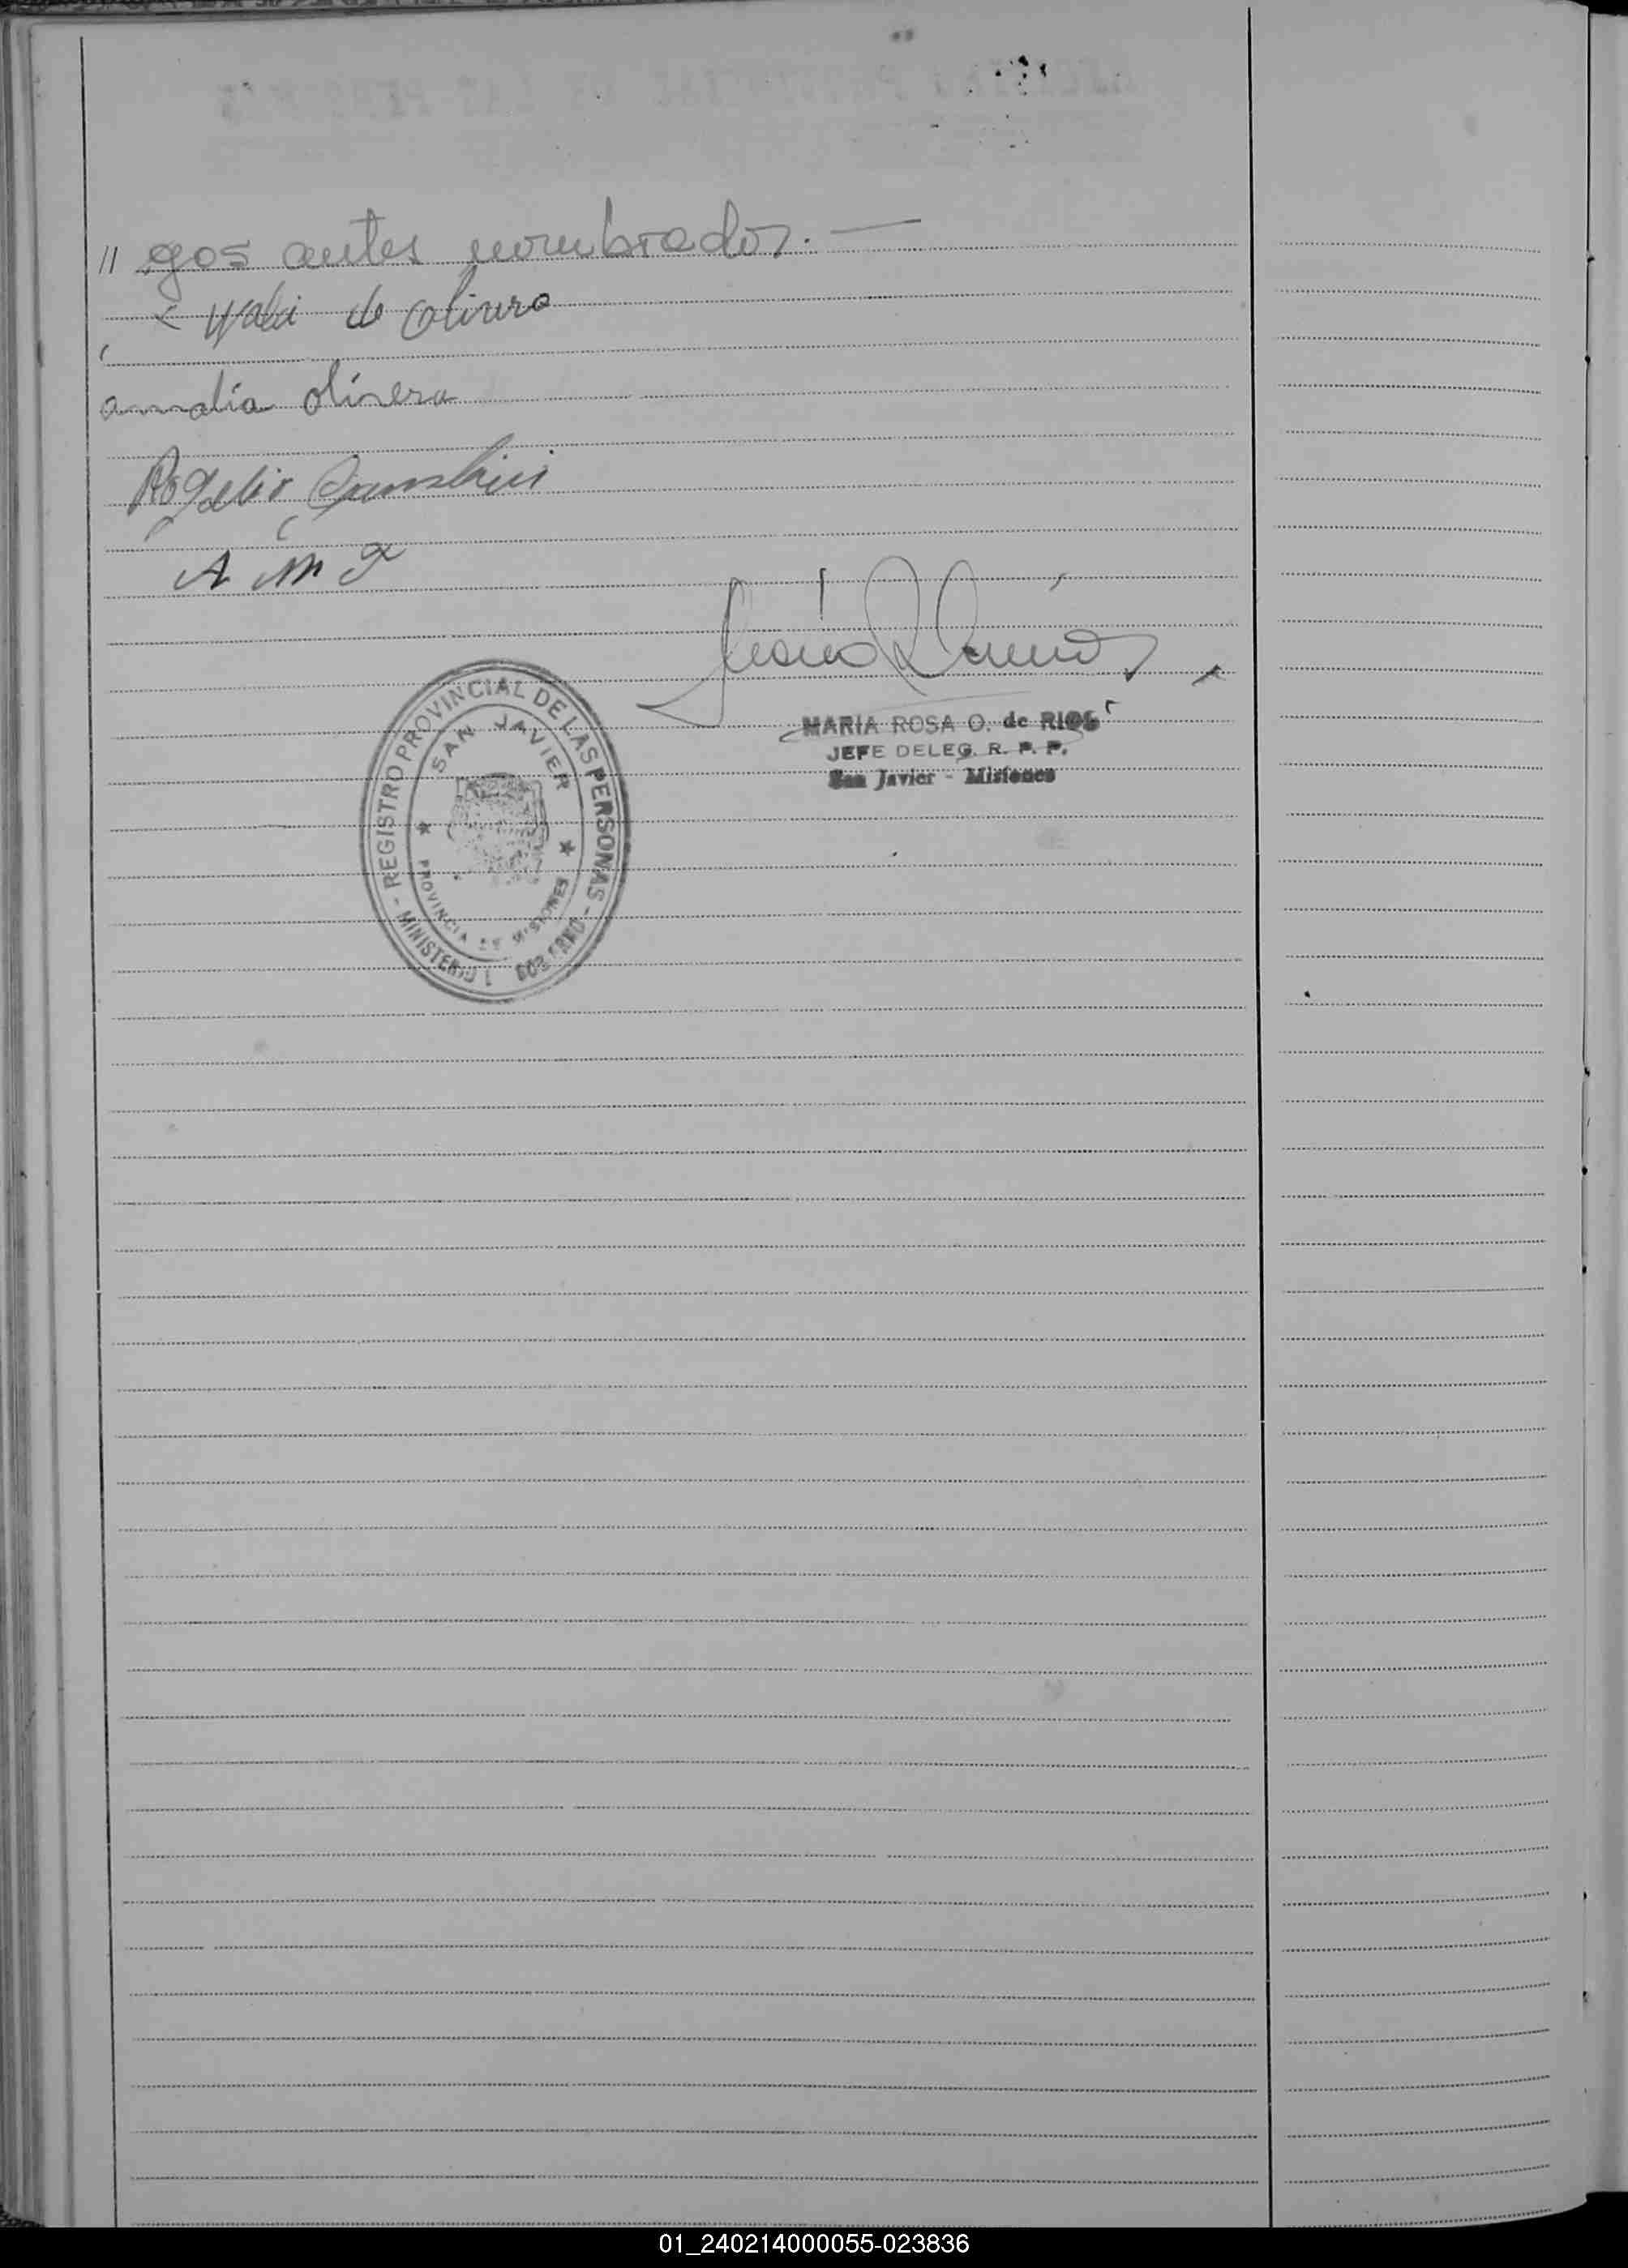 // gos antes nombrados. —
Wali de Olivera
amalia olivera
Rogelio
A M F
MARIA ROSA O. de RIOS
JEFE DELEG. R. P. P.
San Javier - Misiones
REGISTRO PROVINCIAL DE LAS PERSONAS - MINISTERIO GOBIERNO -
SAN JAVIER
PROVINCIA DE MISIONES
01_240214000055-023836